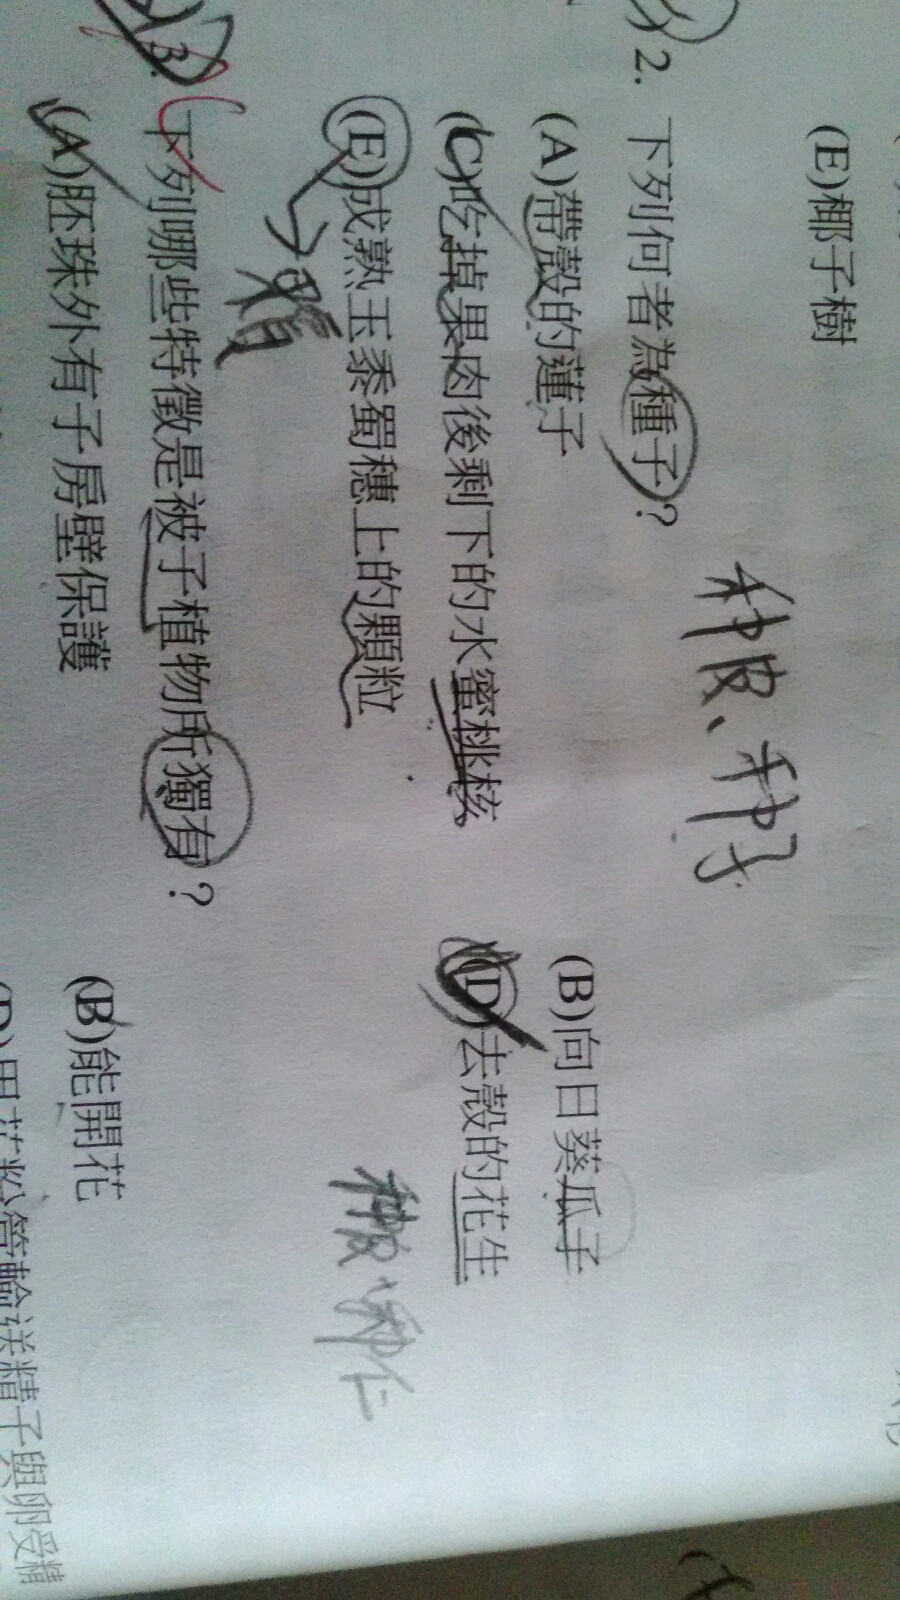 (E)椰子樹
种皮、种子
2. 下列何者為種子?
(A)帶殼的蓮子 (B)向日葵瓜子
(C)吃掉果肉後剩下的水蜜桃核 (D)去殼的花生
(E)成熟玉黍蜀穗上的顆粒
种皮、种仁
3. 下列哪些特徵是被子植物所獨有?
(A)胚珠外有子房壁保護 (B)能開花
(D)用花粉管輸送精子與卵受精